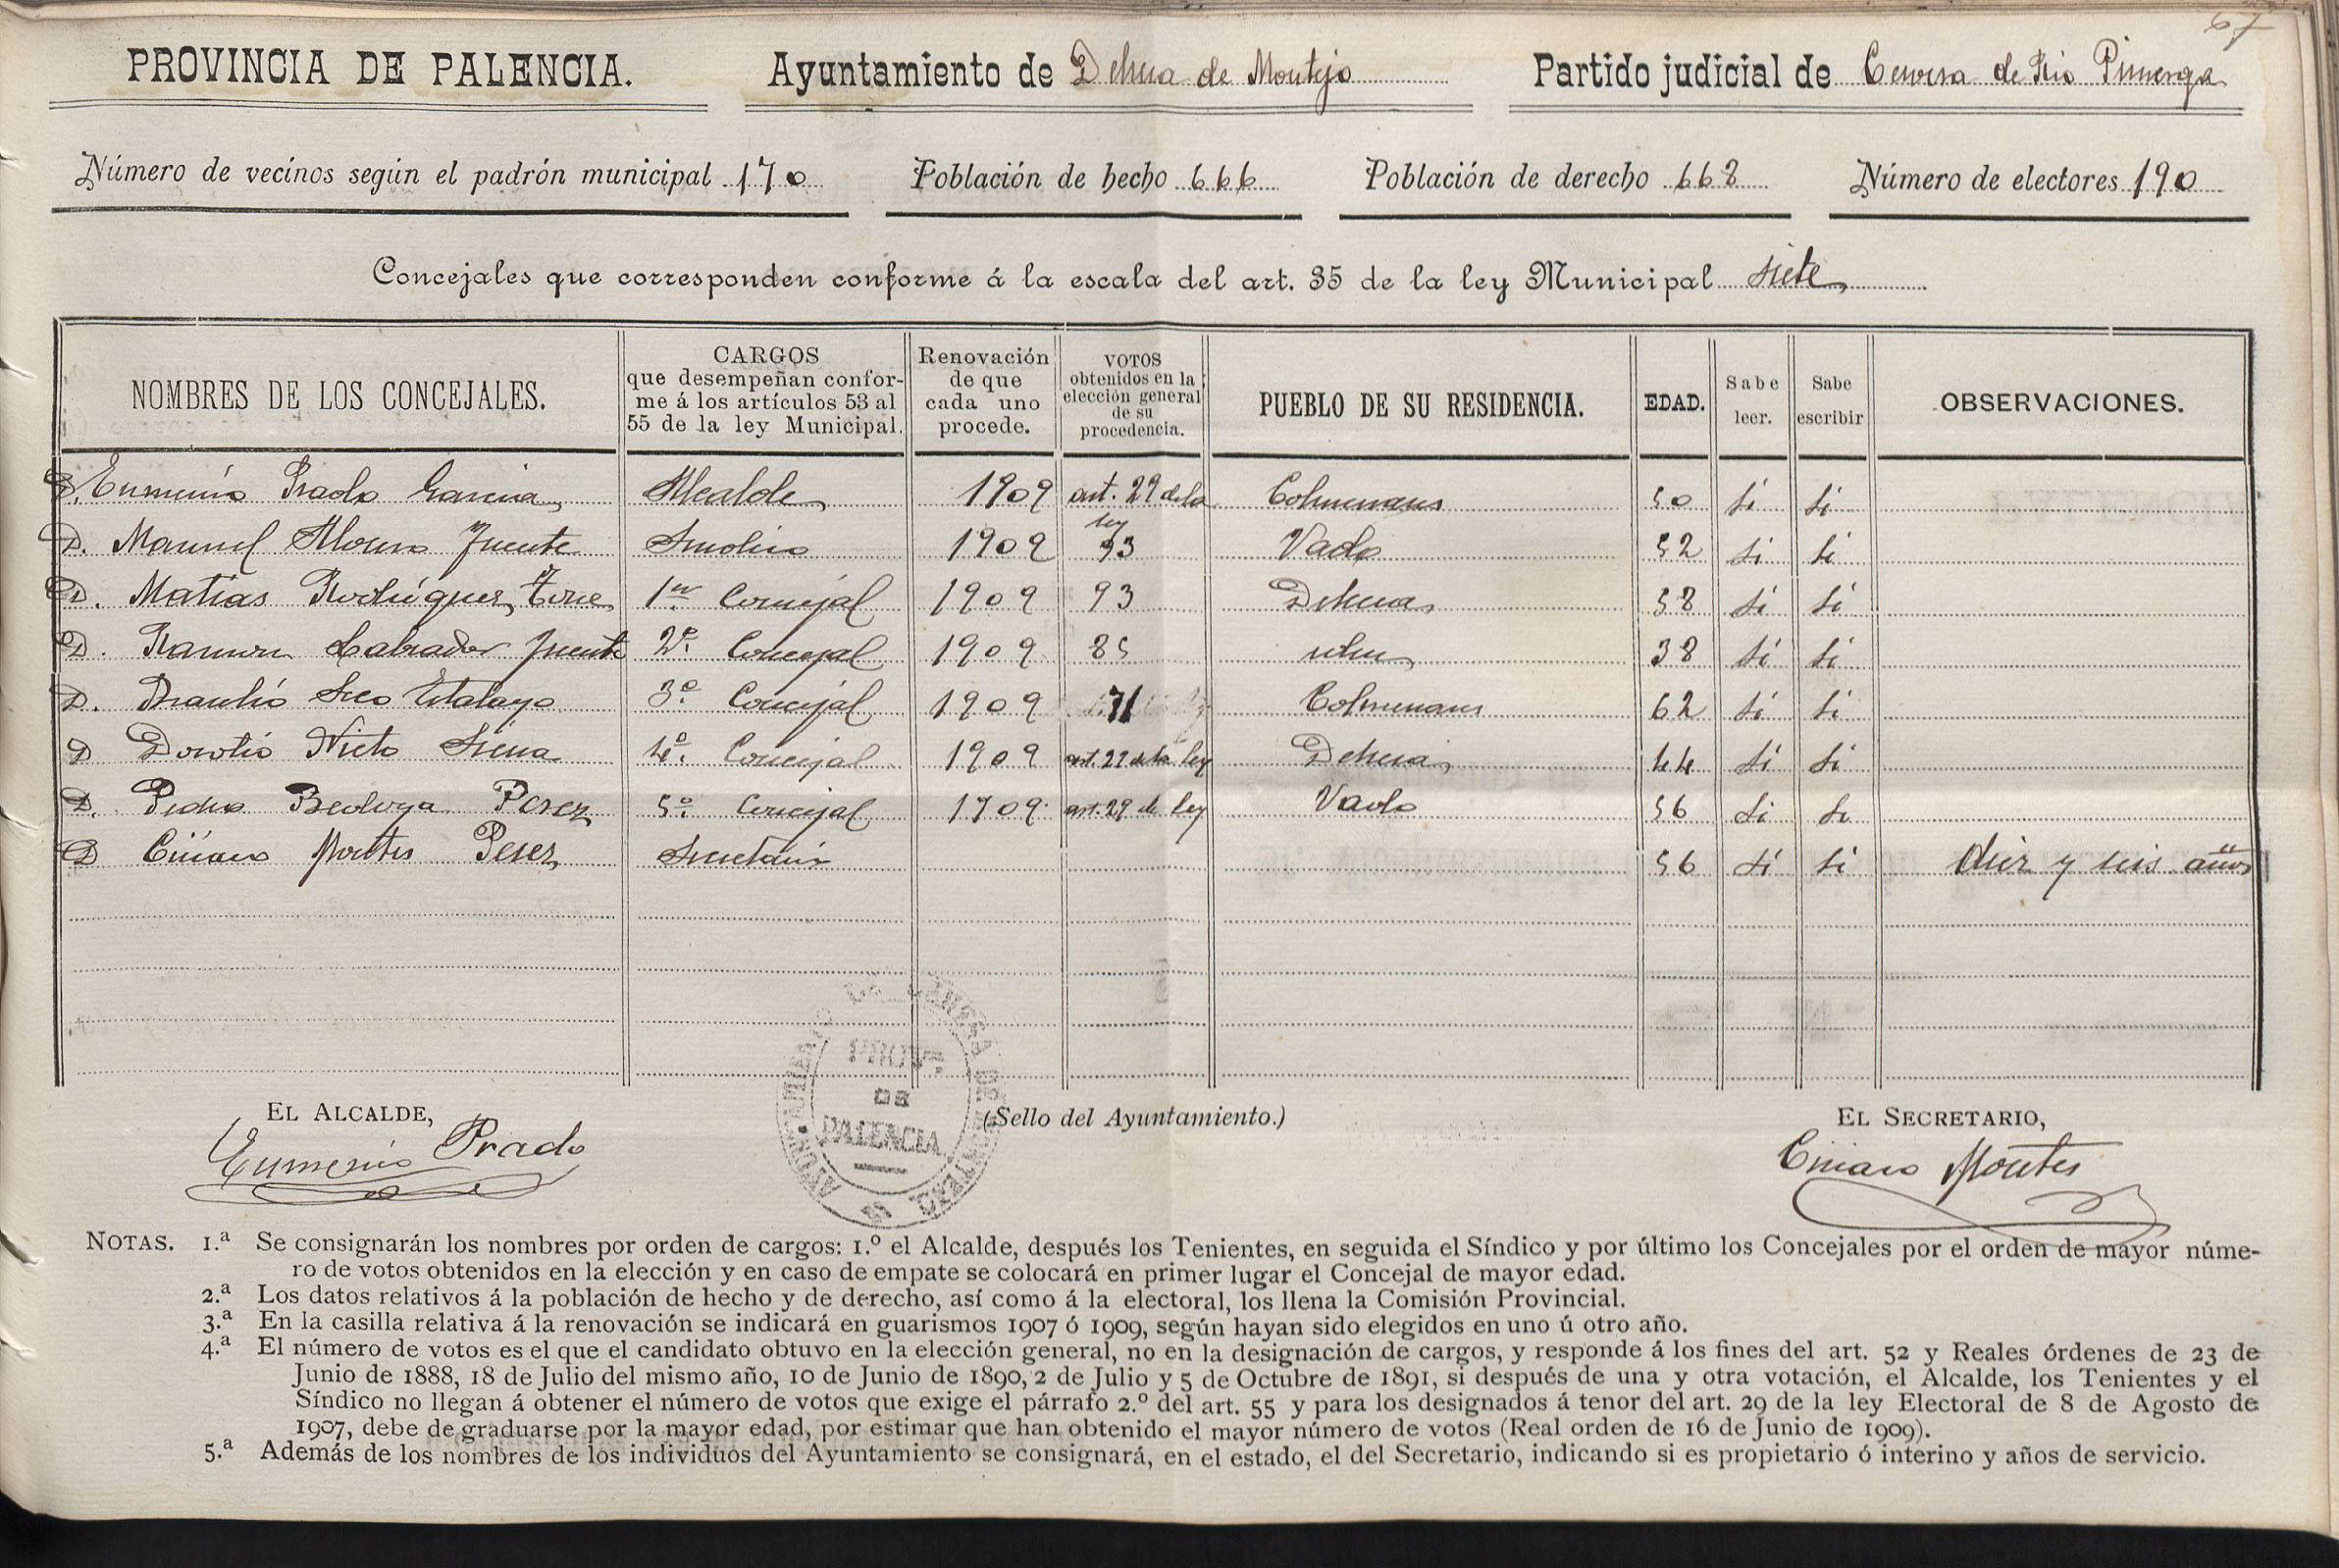 67
PROVINCIA DE PALENCIA. Ayuntamiento de Dehesa de Montejo Partido judicial de Cervera de Rio Pisuerga
Número de vecinos según el padrón municipal 170 Población de hecho 666 Población de derecho 668 Número de electores 190
Concejales que corresponden conforme á la escala del art. 35 de la ley Municipal siete
NOMBRES DE LOS CONCEJALES. CARGOS que desempeñan conforme á los artículos 53 al 55 de la ley Municipal. Renovación de que cada uno procede. VOTOS obtenidos en la elección general de su procedencia. PUEBLO DE SU RESIDENCIA. EDAD. Sabe leer. Sabe escribir OBSERVACIONES.
D. Eumenio Prado Garcia Alcalde 1909 art. 29 de la ley Colmenares 50 si si
D. Manuel Alonso Fuente Sindico 1909 93 Vado 52 si si
D. Matias Rodríguez Torre 1er Concejal 1909 93 Dehesa 58 si si
D. Ramon Labrador Fuente 2º Concejal 1909 85 idem 38 si si
D. Braulio Seco 3º Concejal 1909 71 Colmenares 62 si si
D Doroteo Nieto Sierra 4º Concejal 1909 art. 29 de la ley Dehesa 44 si si
D. Pedro Perez 5º Concejal 1909 art. 29 de ley Vado 56 si si
D Ciriaco Montes Perez Secretario 56 si si diez y seis años
AYUNTAMIENTO DE DEHESA DE MONTEJO
PROVª DE PALENCIA
EL ALCALDE, (Sello del Ayuntamiento.) EL SECRETARIO,
Eumenio Prado Ciriaco Montes
NOTAS. 1.ª Se consignarán los nombres por orden de cargos: 1.º el Alcalde, después los Tenientes, en seguida el Síndico y por último los Concejales por el orden de mayor núme-
ro de votos obtenidos en la elección y en caso de empate se colocará en primer lugar el Concejal de mayor edad.
2.ª Los datos relativos á la población de hecho y de derecho, así como á la electoral, los llena la Comisión Provincial.
3.ª En la casilla relativa á la renovación se indicará en guarismos 1907 ó 1909, según hayan sido elegidos en uno ú otro año.
4.ª El número de votos es el que el candidato obtuvo en la elección general, no en la designación de cargos, y responde á los fines del art. 52 y Reales órdenes de 23 de
Junio de 1888, 18 de Julio del mismo año, 10 de Junio de 1890, 2 de Julio y 5 de Octubre de 1891, si después de una y otra votación, el Alcalde, los Tenientes y el
Síndico no llegan á obtener el número de votos que exige el párrafo 2.º del art. 55 y para los designados á tenor del art. 29 de la ley Electoral de 8 de Agosto de
1907, debe de graduarse por la mayor edad, por estimar que han obtenido el mayor número de votos (Real orden de 16 de Junio de 1909).
5.ª Además de los nombres de los individuos del Ayuntamiento se consignará, en el estado, el del Secretario, indicando si es propietario ó interino y años de servicio.